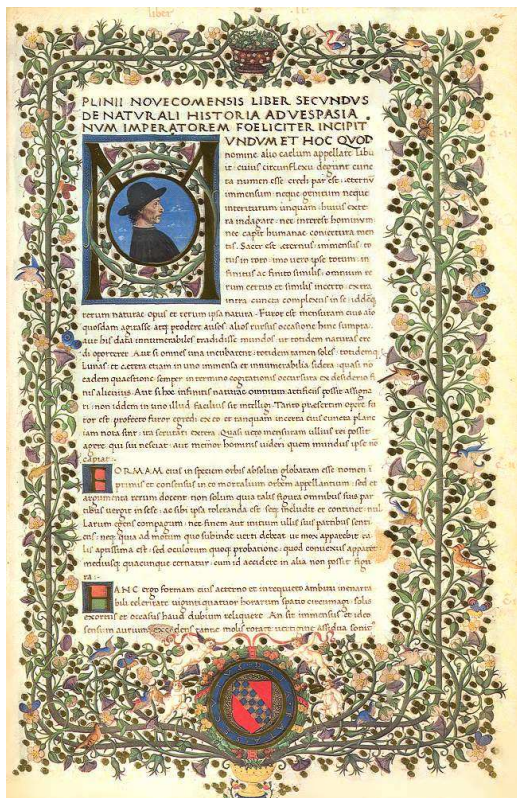 liber .II.
PLINII NOVECOMENSIS LIBER SECVNDVS
DE NATVRALI HISTORIA AD VESPASIA
NVM IMPERATOREM FOELICITER INCIPIT
M
VNDVM ET HOC QVOD
nomine alio caelum appellare libu
it: cuius circunflexu degunt cunc
ta numen esse credi par est: aeternũ
immensum neque genitum neque
interiturum unquam: huius exte
ra indagare nec interest hominum
nec capit humanae coniectura men
tis. Sacer est aeternus immensus to
tus in toto: imo uero ipse totum: in
finitus ac finito similis: omnium re
rum certus et similis incerto: extra
intra cuncta complexus in se: idẽq,
rerum naturae opus et rerum ipsa natura. Furor est mensuram eius aĩo
quosdam agitasse atq prodere ausos: alios rursus occasione hinc sumpta
aut his data innumerabiles tradidisse mundos: ut totidem naturas cre
di oporteret: Aut si omnes una incubarent: totidem tamen soles: totidemq,
Lunas: et cetera etiam in uno immensa et innumerabilia sidera: quasi nõ
eadem quaestione semper in termino cogitationis occursura ex desiderio fi
nis alicuius. Aut si hoc infinitas naturae omnium artifici possit assigna
ri: non iddem in uno illud facilius sit intelligi. Tanto praesertim opere fu
ror est: profecto furor egredi ex eo: et tanquam interna eius cuncta plane
iam nota sint: ita scrutari extera. Quasi uero mensuram ullius rei possit
agere: qui sui nesciat: aut mens hominis uideri quem mundus ipse nõ
capiat:-
FORMAM eius in speciem orbis absoluti globatam esse nomen ĩ
primis et consensus in eo mortalium orbem appellantium: sed et
argumenta rerum docent: non solum quia talis figura omnibus suis par
tibus uergit in sese: ac sibi ipsa toleranda est: seq includit et continet: nul
larum egens compagum: nec finem aut initium ullis suis partibus senti
ens: neq quia ad motum quo subinde uerti debeat ut mox apparebit ta
lis aptissima est: sed oculorum quoq probatione: quod conuexus
mediusq quacunque cernatur: cum id accidere in alia non possit figu
ra:-
HANC ergo formam eius aeterno et irrequieto ambitu inenarra
bili celeritate uiginti quatuor horarum spatio circumagi: solis
exortus et occasus haud dubium reliquere. An sit immensus et ideo
sensum aurium excedens tantae molis rotatae uertigine assidua sonit